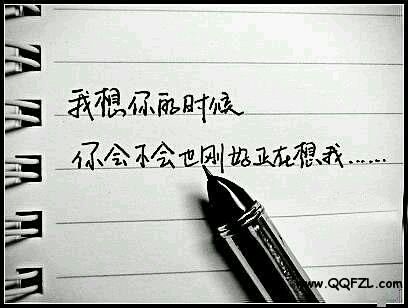 我想你的时候
你会不会也刚好正在想我......
www.QQFZL.com